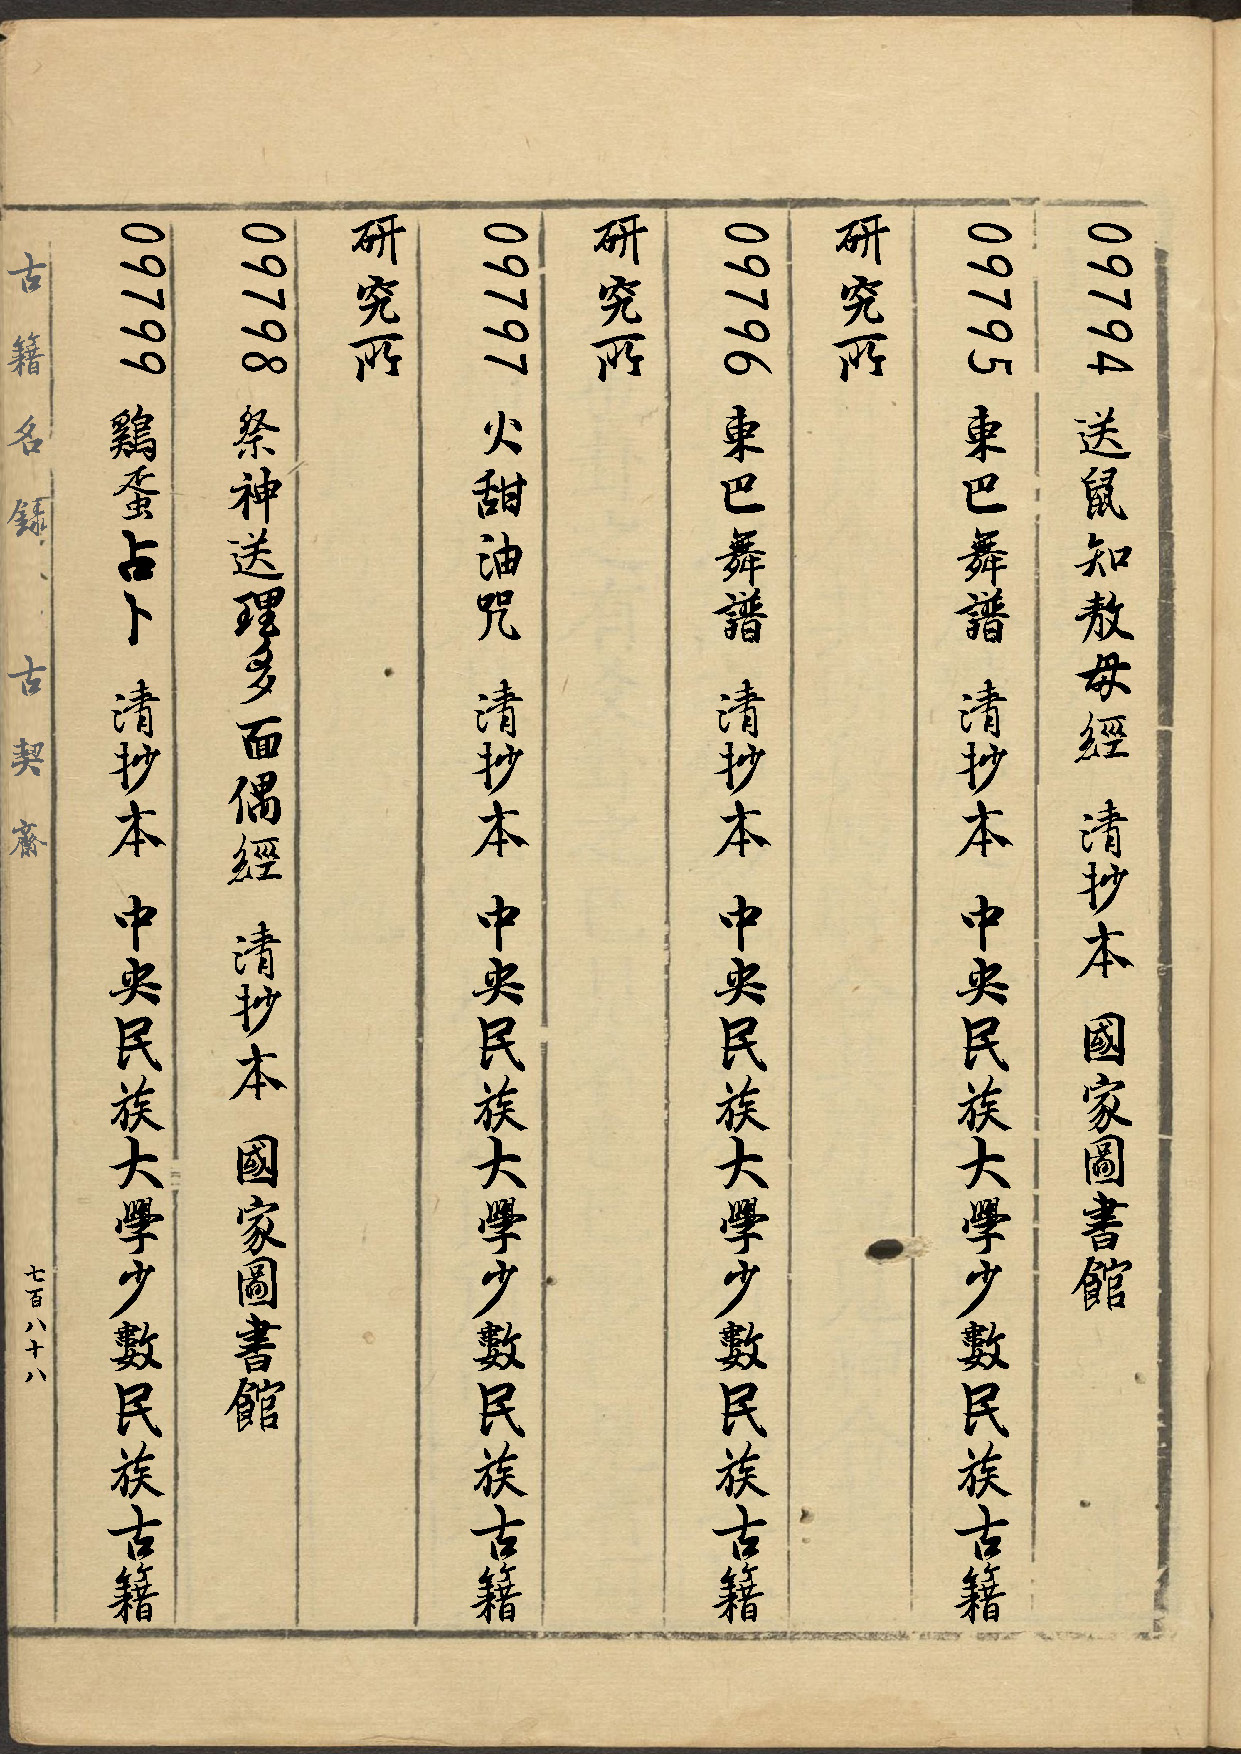 09794 送鼠知敖母經 清抄本 國家圖書館
09795 東巴舞譜 清抄本 中央民族大學少數民族古籍
研究所
09796 東巴舞譜 清抄本 中央民族大學少數民族古籍
研究所
09797 火甜油咒 清抄本 中央民族大學少數民族古籍
研究所
09798 祭神送理多面偶經 清抄本 國家圖書館
09799 鷄蛋占卜 清抄本 中央民族大學少數民族古籍
古籍名錄、古契齋
七百八十八